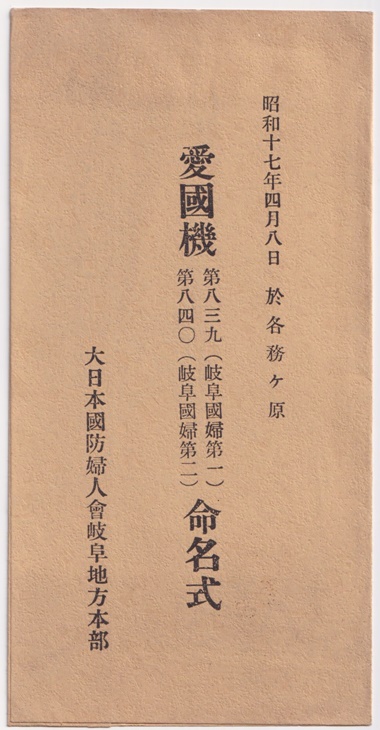 昭和十七年四月八日 於各務ヶ原
愛國機 第八三九（岐阜國婦第一） 命名式
第八四〇（岐阜國婦第二）
大日本國防婦人會岐阜地方本部